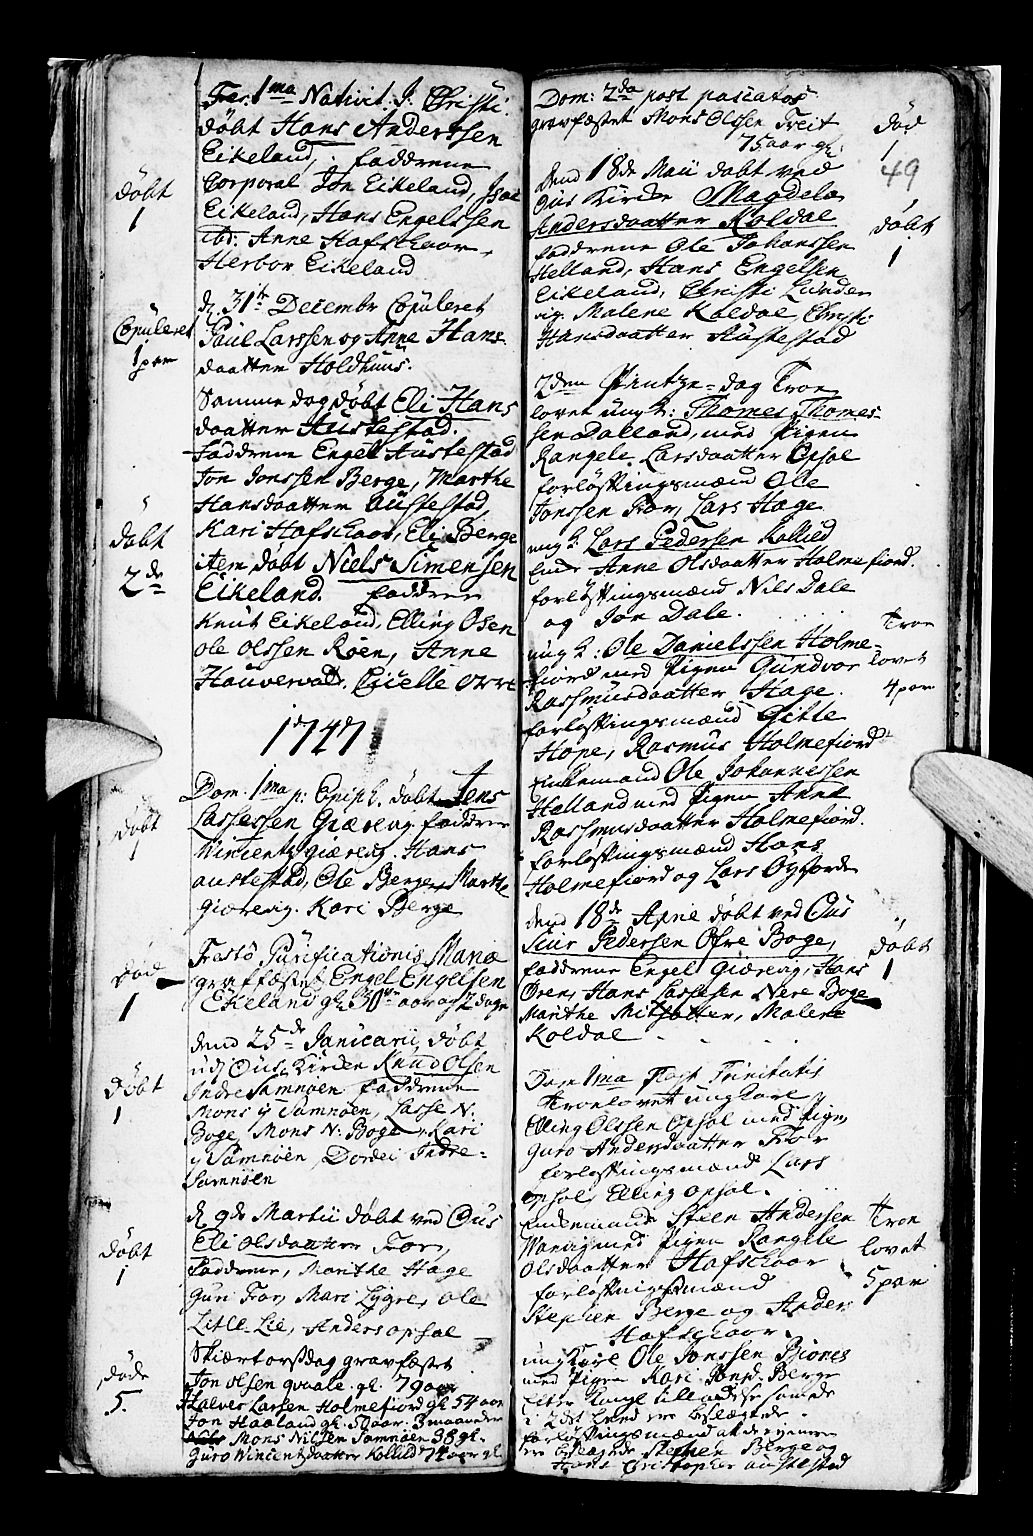 Fer: 1ma Nativit. J. Christi
döbt Hans Anderssen
Eikeland, faddrene
Corporal Jon Eikeland, Isac
Eikeland, Hans Engelssen
ibd: Anne Hafschoor,
Herbor Eikeland
döbt
1
d. 31te Decembr Copuleret
Paul Larssen og Anne Hans
daatter Holdhuus.
Copuleret
1 par
Samme dag döbt Eli Hans
daatter Hustestad.
faddrene Engel Hustestad
Jon Jonssen Berge, Marthe
Hansdaatter Austestad,
Kari Hafschoor, Eli Berge
item döbt Niels Simensen
Eikeland. faddrene
Knut Eikeland, Elling Osen
Ole Olssen Röen, Anne
Hauvervald, Cicelle Orre
döbt
2de
1747
Dom. 1ma p: Epiph. döbt Jens
Lassessen Gierevig faddrene
Wincents Gierevig. Hans
Austestad, Ole Berge, Marthe
Gierevig. Kari Berge
döbt
1
Festo Purificationis Mariæ
graffæstet Engel Engelsen
Eikeland gl. 30 aar og 2 dage
död
1
dend 25de Janivarii döbt
udj Ous Kircke Knud Olsen
Indre Samnöen faddrene
Mons y Samnöen, Lasse N:
Boge, Mons N: Boge, Kari
y Samnöen, Dordei Indre-
Samnöen
döbt
1
d. 9de Martii döbt ved Ous
Eli Olsdaatter For,
faddrene, Marithe Hage
Guri For, Mari Lygre, Ole
Litle Lie, Anders Opsal
döbt
1
Skiærtorsdag gravfæstet
Jon Olsen Qvaale gl. 79 aar
Halver Larsen Holmefiord gl 54 aar
Jon Haaland gl. 50 aar 3 maaneder
Mons Nilsen Samnöen 38 gl.
Guro Wincentsdaatter Kollied 74 aar gl
döde
5.
Dom: 2da post pascatos
gravfæstet Mons Olssen Treit
75 aar gl:
död
1
49
dend 18de Maii döbt ved
Ous Kircke Magdela
Andersdaatter Koldal
faddrene Ole Johanssen
Helland, Hans Engelsen
Eikeland, Christi Lunder
vig. Malene Koldal, Christi
Hansdaatter Austestad
döbt
1
2den Pintze-dag Troe
lovet ungk: Thomes Thomes-
sen Dalland, med Pigen
Rangele Larsdaatter Opsal
forlöftningsmænd Ole
Jonssen For, Lars Hage
ungk. Lars Pedersen Kollied
Anne Olsdaatter Holmefiord.
forlöftningsmænd Nils Dale
og Jon Dale.
ungk: Ole Danielssen Holme-
fiord med Pigen Gundvor
Rasmusdaatter Hage.
forlöftningsmænd Gitle
Hope, Rasmus Holmefiord
Enkemand Ole Johannessen
Helland med Pigen Anne
Rasmusdaatter Holmefiord.
forlöftningsmænd Hans
Holmefiord og Lars
Troe
lovet
4 par
dend 18de April döbt ved Ous
Siur Pedersen Öfre Boge,
faddrene Engel Gierevig, Hans
Ören, Hans Lassesen Nere Boge
Marithe Mitsetter, Malene
Koldal
döbt
1
Dom 1ma Post Trinitatis
troelovet ungkarl
Elling Olssen Opsal med Pigen
Guro Andersdaatter For
forlöftningsmænd Lars
Opsal, Elling Opsal.
Enkemand Steen Andersen
med Pigen Rangele
Olsdaatter Hafschoor
forlöftningsmænd
Stephen Berge og Anders
Hafschoor.
Troe
lovet
5 par
ungkarl Ole Jonssen Biönes
med Pigen Kari Berge
efter Kongl tilladelse samme
i 2det leed ere beslægtede.
forlöftningsmænd at de ej nermere
ere beslægtede Stephen Berge og
Hans Christopher Austestad